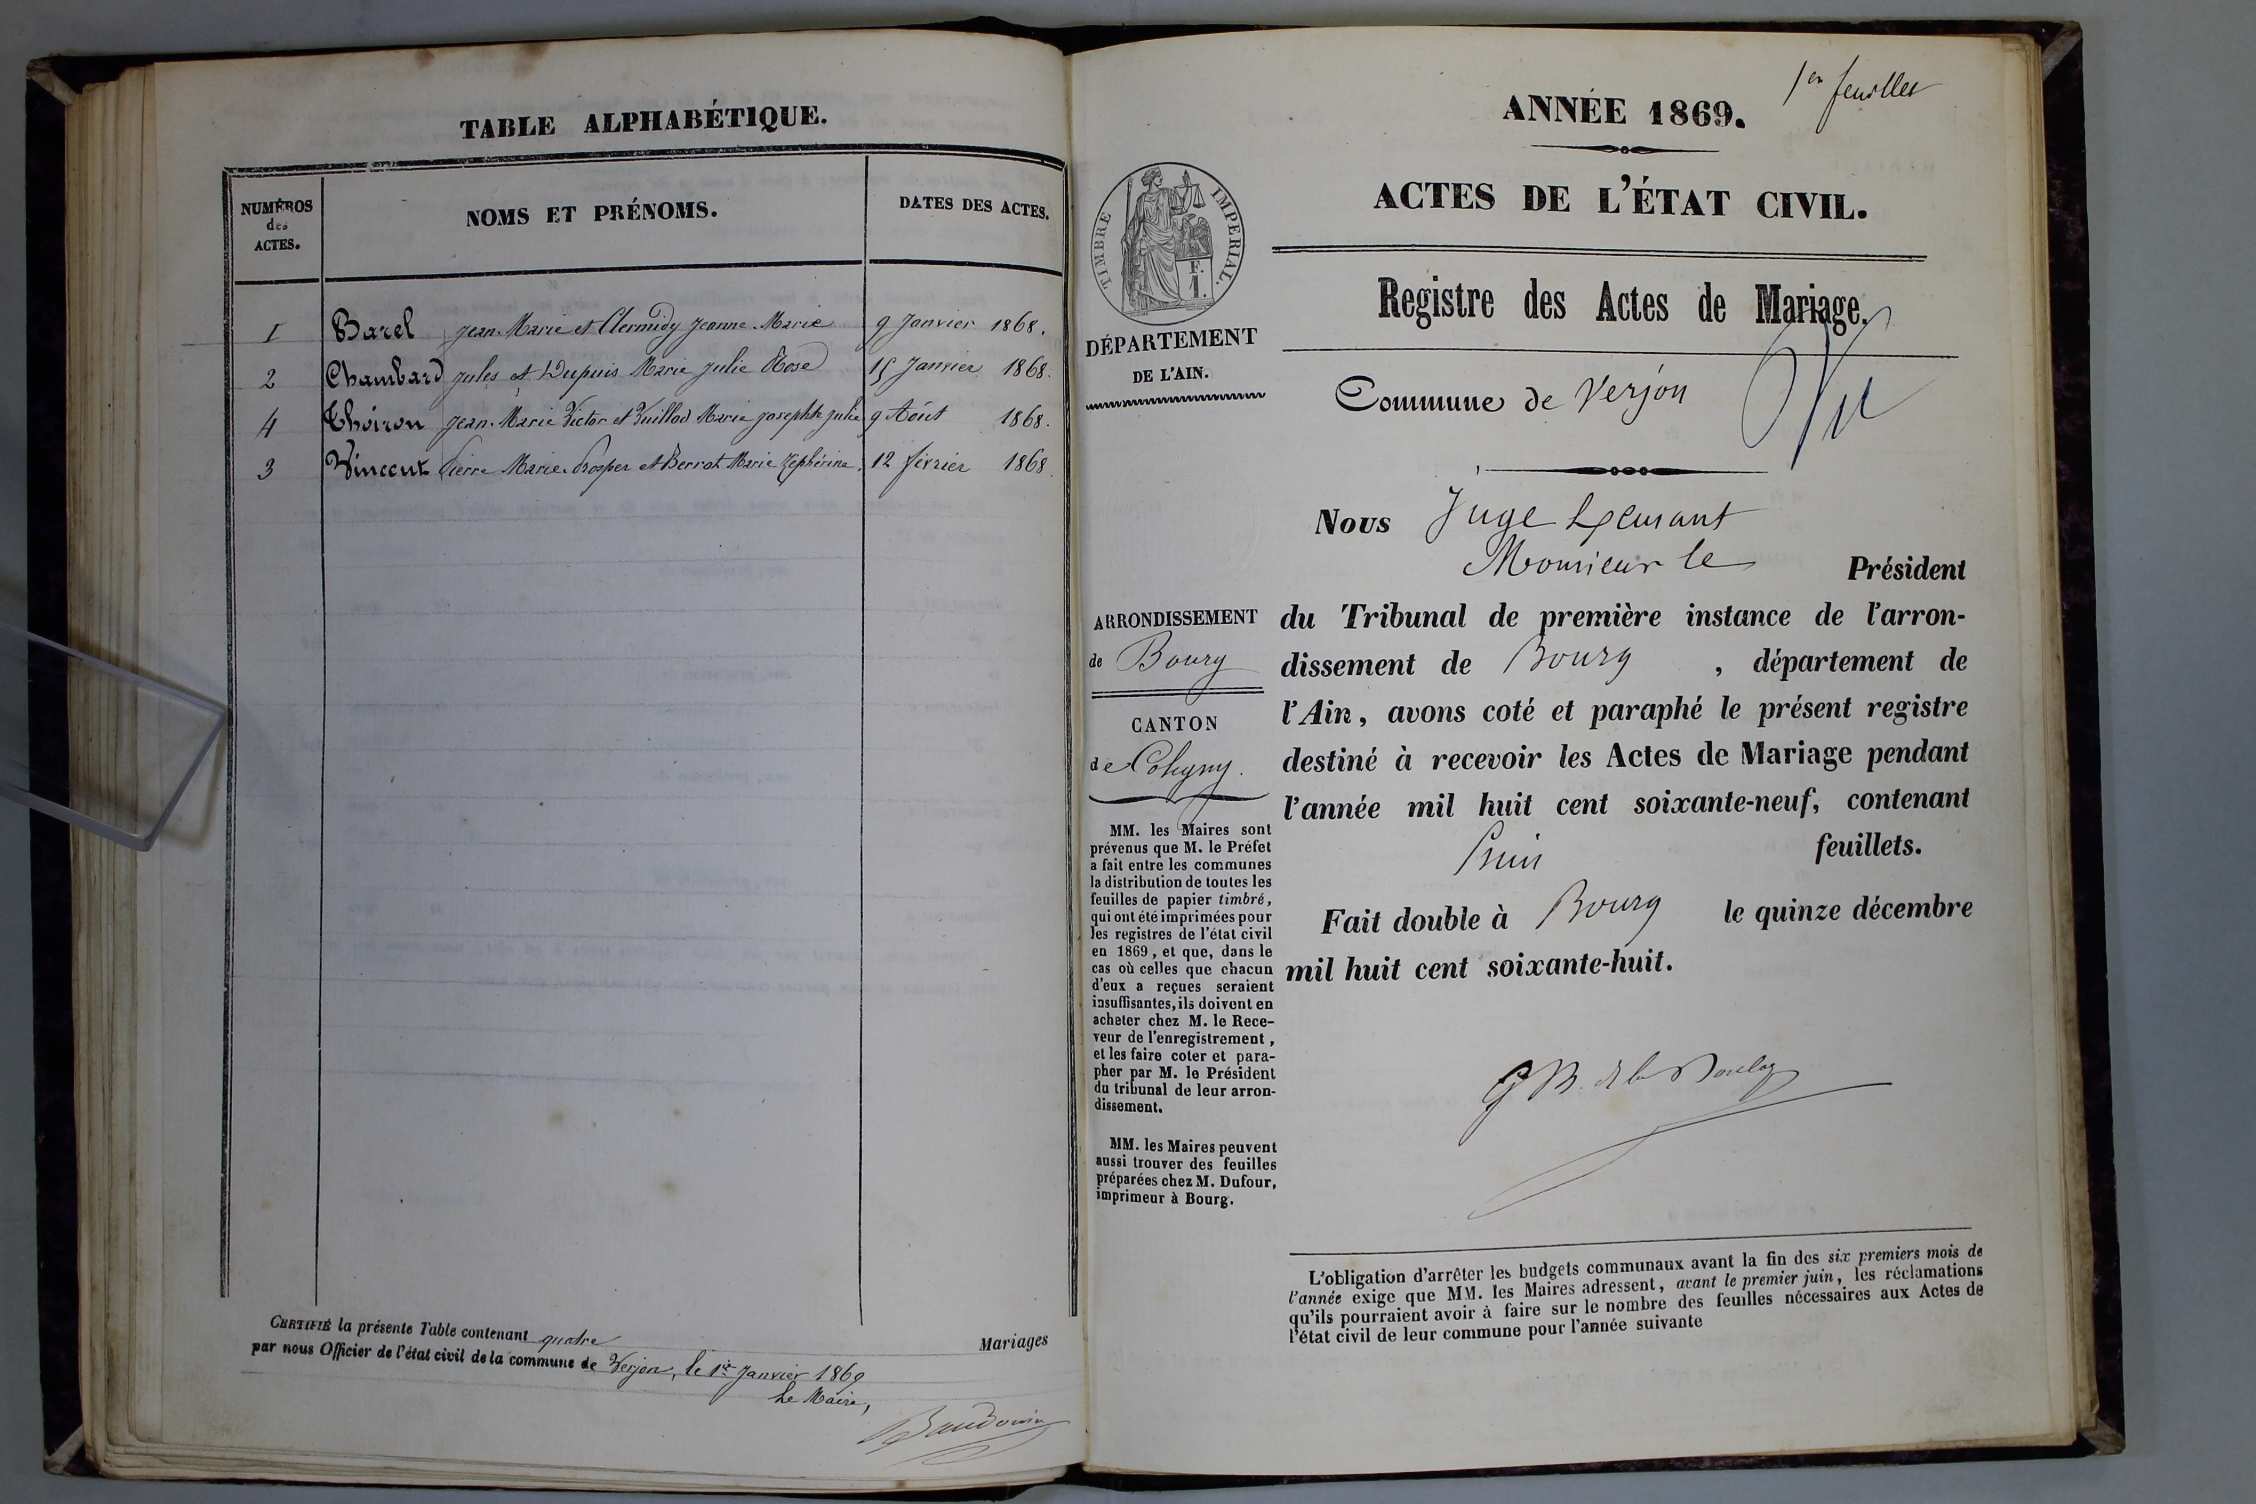 TABLE ALPHABÉTIQUE.
NUMÉROS
des
ACTES.
NOMS ET PRÉNOMS.
DATES DES ACTES.
1 Barel Jean-Marie et Clermidy Jeanne-Marie 9 Janvier 1868.
2 Chambard Jules et Dupuis Marie Julie Rose 15 Janvier 1868.
4 Thoiron Jean-Marie Victor et Vuillod Marie Josephte Julie 9 Août 1868.
3 Vincent Pierre Marie Prosper et Berrot Marie Zéphérine. 12 février 1868.
CERTIFIÉ la présente Table contenant quatre Mariages
par nous Officier de l'état civil de la commune de Verjon, le 1er Janvier 1869
Le Maire,
Baudouin
1er feuillet
ANNÉE 1869.
ACTES DE L'ÉTAT CIVIL.
TIMBRE IMPERIAL.
F.
1.
DÉPARTEMENT
DE L'AIN.
Registre des Actes de Mariage.
Commune de Verjon
Vu
Nous Juge
Monsieur le Président
ARRONDISSEMENT
de Bourg
CANTON
de Coligny.
du Tribunal de première instance de l'arron-
dissement de Bourg, département de
l'Ain, avons coté et paraphé le présent registre
destiné à recevoir les Actes de Mariage pendant
l'année mil huit cent soixante-neuf, contenant
feuillets.
Fait double à Bourg le quinze décembre
mil huit cent soixante-huit.
MM. les Maires sont
prévenus que M. le Préfet
a fait entre les communes
la distribution de toutes les
feuilles de papier timbré,
qui ont été imprimées pour
les registres de l'état civil
en 1869, et que, dans le
cas où celles que chacun
d'eux a reçues seraient
insuffisantes, ils doivent en
acheter chez M. le Rece-
veur de l'enregistrement,
et les faire coter et para-
pher par M. le Président
du tribunal de leur arron-
dissement.
MM. les Maires peuvent
aussi trouver des feuilles
préparées chez M. Dufour,
imprimeur à Bourg.
L'obligation d'arrêter les budgets communaux avant la fin des six premiers mois de
l'année exige que MM. les Maires adressent, avant le premier juin, les réclamations
qu'ils pourraient avoir à faire sur le nombre des feuilles nécessaires aux Actes de
l'état civil de leur commune pour l'année suivante